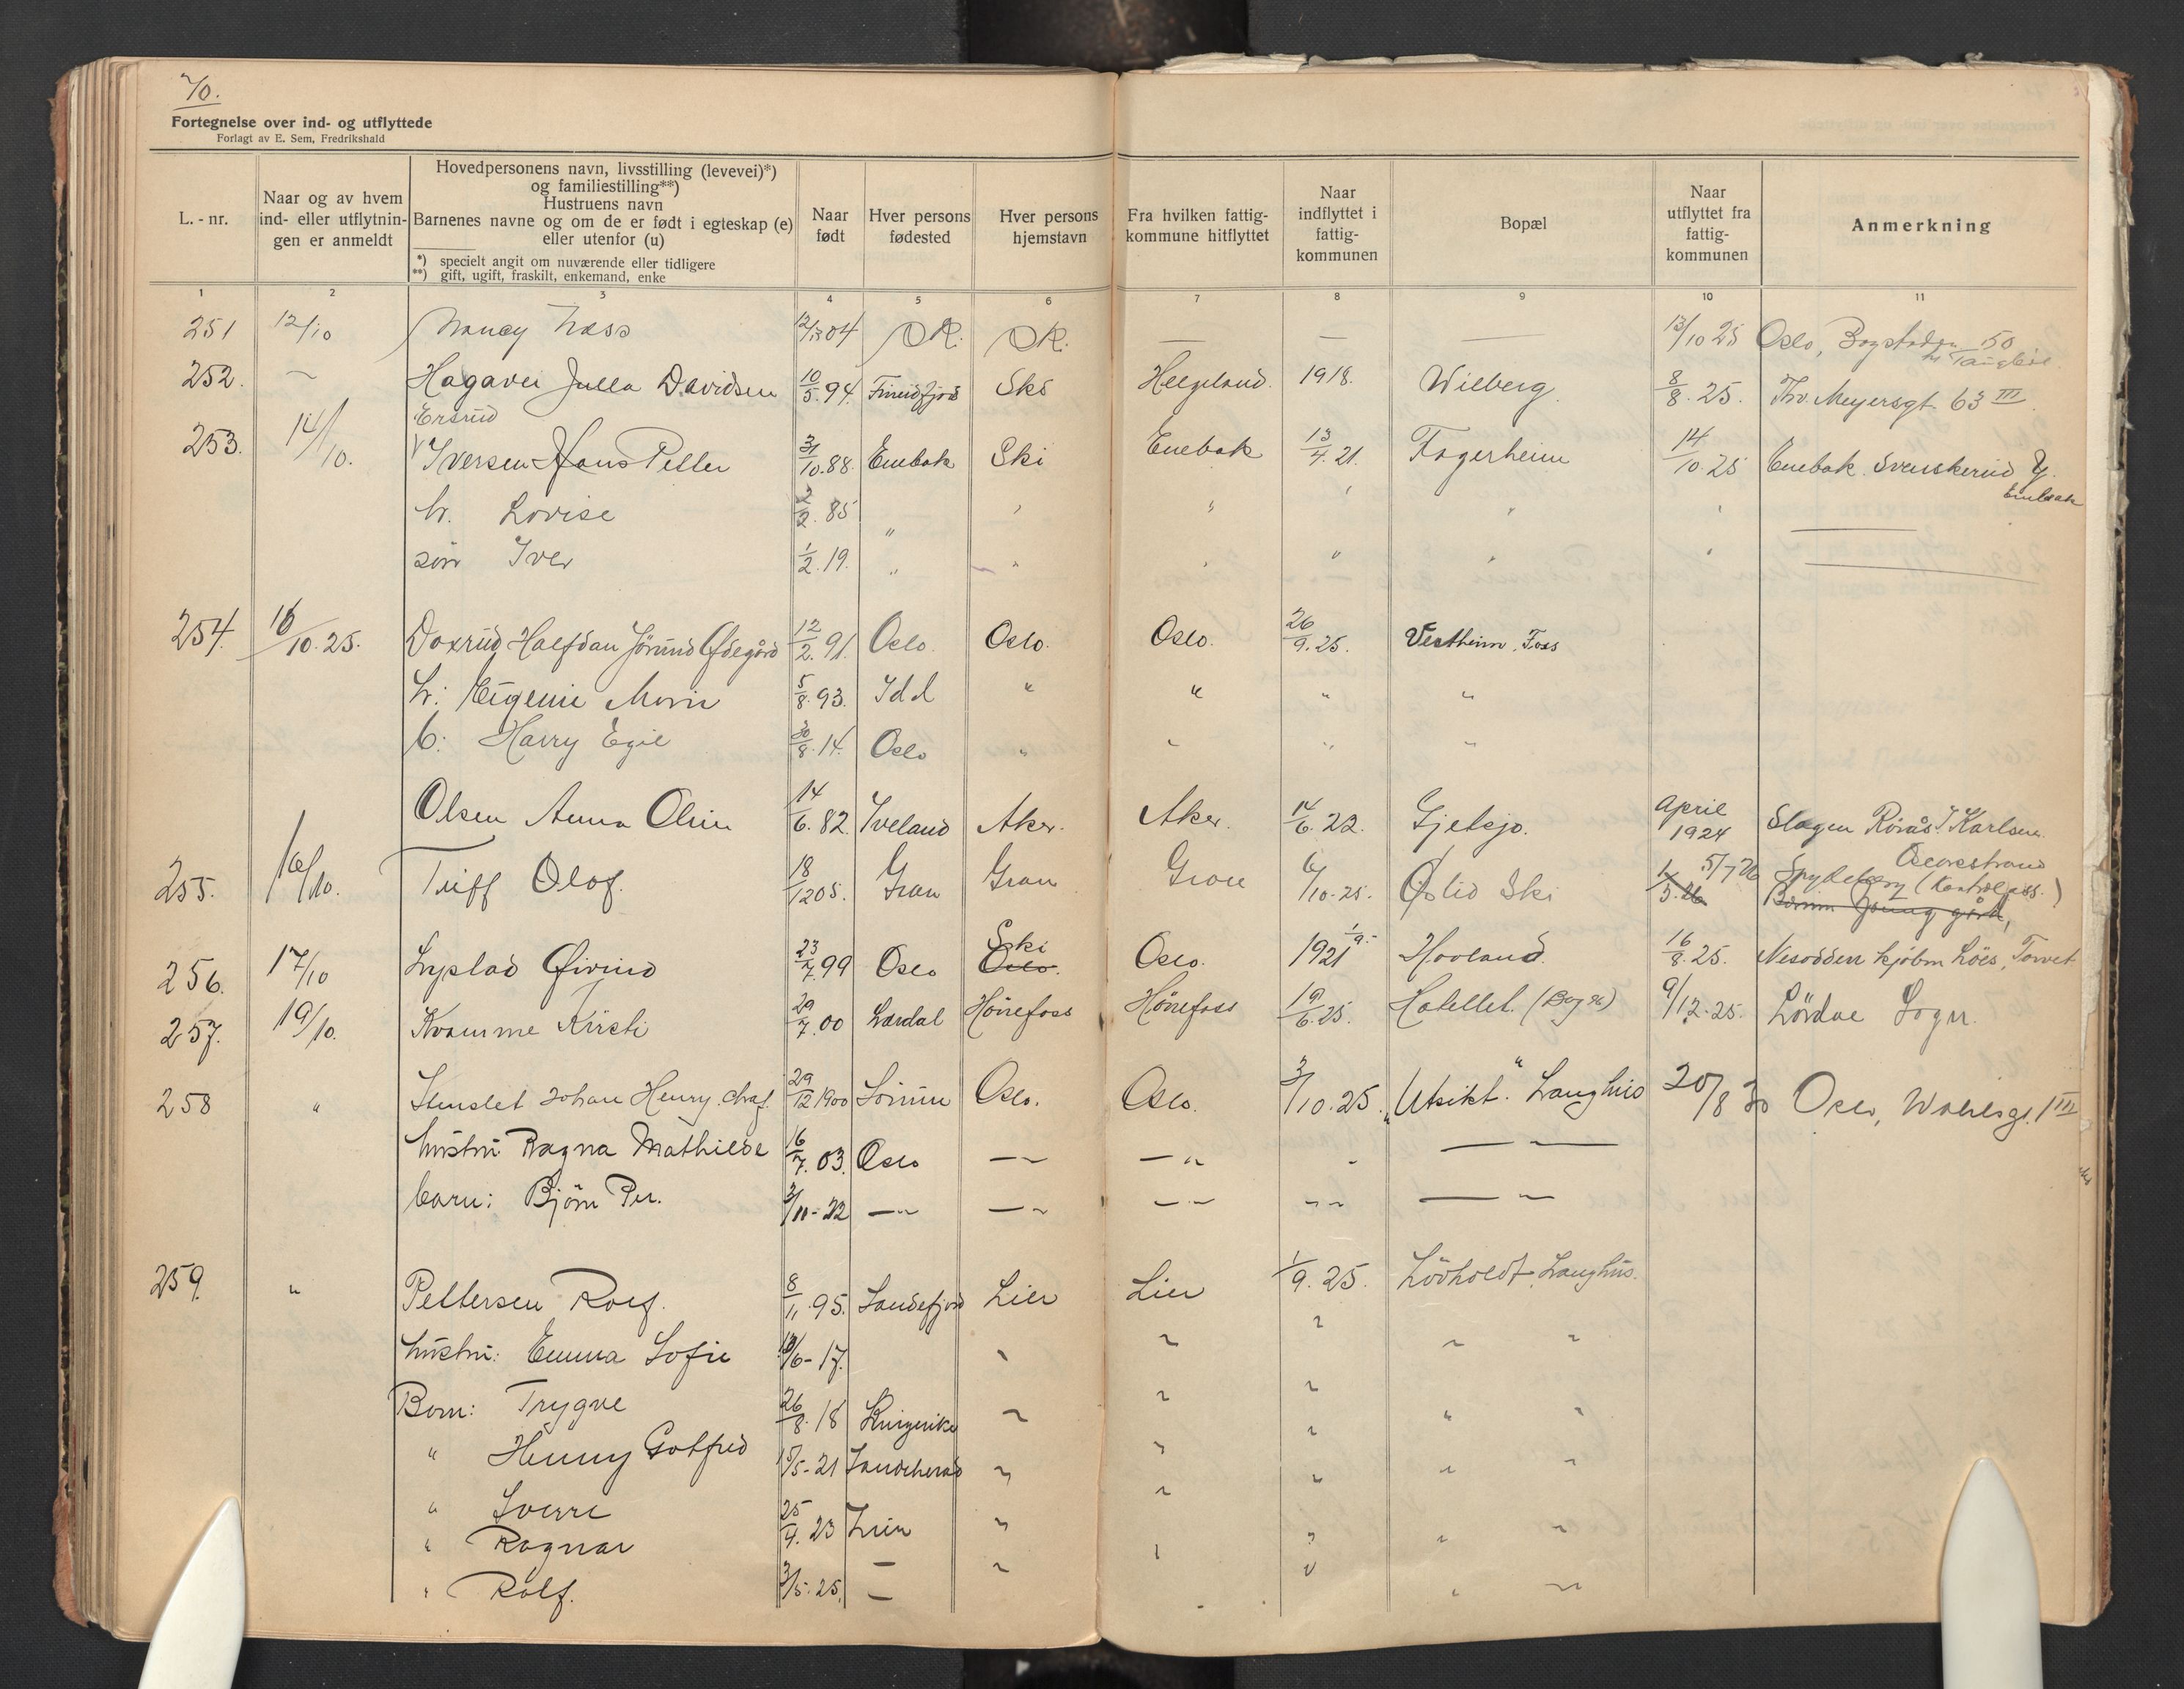 70.
Fortegnelse over ind- og utflyttede
Forlagt av E. Sem, Fredrikshald
L. - nr.
Naar og av hvem
ind- eller utflytnin-
gen er anmeldt
Hovedpersonens navn, livsstilling (levevei)*)
og familiestilling**)
Hustruens navn
Barnenes navne og om de er født i egteskap (e)
eller utenfor (u)
*) specielt angit om nuværende eller tidligere
**) gift, ugift, fraskilt, enkemand, enke
Naar
født
Hver persons
fødested
Hver persons
hjemstavn
Fra hvilken fattig-
kommune hitflyttet
Naar
indflyttet i
fattig-
kommunen
Bopæl
Naar
utflyttet fra
fattig-
kommunen
Anmerkning
1 2 3 4 5 6 7 8 9 10 11
251 12/10 Nancy Næss — — — 13/10 25 Oslo, 50
252. ~ Hagavei Julla Davidsen 10/5.94. Ski Helgeland. 1918. Wilberg. 8/8.25. Thv. Meyersgt. 63 III
Ersrud
253. 14/10. Iversen Hans Petter 31/10.88. Enebak Ski Enebak 13/4.21. Fagerheim 14/10.25 Enebak. Svenskerud Y.
Enebak
h. Lovise 2/2.85 " " " " " "
søn Iver 1/2.19. " " " " " "
254. 16/10.25. Doxrud, Halfdan Jørund Ødegård 12/2.91. Oslo. Oslo. Oslo. 26/9.25. Vestheim, Foss
h: Eugenie Marie 5/8.93. Idd " " " "
b: Harry Egil 30/8.14. Oslo " " " "
Olsen Anna Oline 14/6.82. Iveland Aker. Aker. 14/6.22. Gjetsjø. April 1924 Slagen Rørås J Karlsen.
Oserstrand
255. 16/10. Triff Olof. 18/12 05. Gran Gran Gran 6/10.25. Østlid Ski 1/5.26 5/7 26 Spydeberg (Kontrolass.)
256. 17/10 Øivind 23/7.99 Oslo Oslo. Ski Oslo. 1921 1/9.- Hovland. 16/8.25. Nesodden kjøbm Löes, Torvet
257. 19/10. Kvamme Kirsti 29/7.00 Lærdal Hønefoss Hønefoss 19/6.25. Hotellet. 9/12.25. Lørdal Sogn.
258 " Stenslet Johan Henry. chaf. 29/12 1900 Sörum Oslo. Oslo. 3/10.25. "Utsikt." Langhus 20/8 30 Oslo, Wahlsgt. 1 III
hustru Ragna Mathilde 16/7.03. Oslo —"— —"— " —"—
barn: Bjørn Per. 3/11-22 —"— —"— —"— "" —"—
259. " Pettersen Rolf. 8/11.95. Sandefjord Lier Lier 1/9.25. Lövholdt, Langhus.
hustru: Emma Sofie 10/6-17. " " " " "
Barn: Trygve 26/8.18 Ringerike " " " " "
" Henny Gotfred 15/5-21 Sandeherad " " " " "
" Sverre 25/4.23 Lier " " " " "
" Ragnar — " " " " "
" Rolf. 3/5.25. — " "